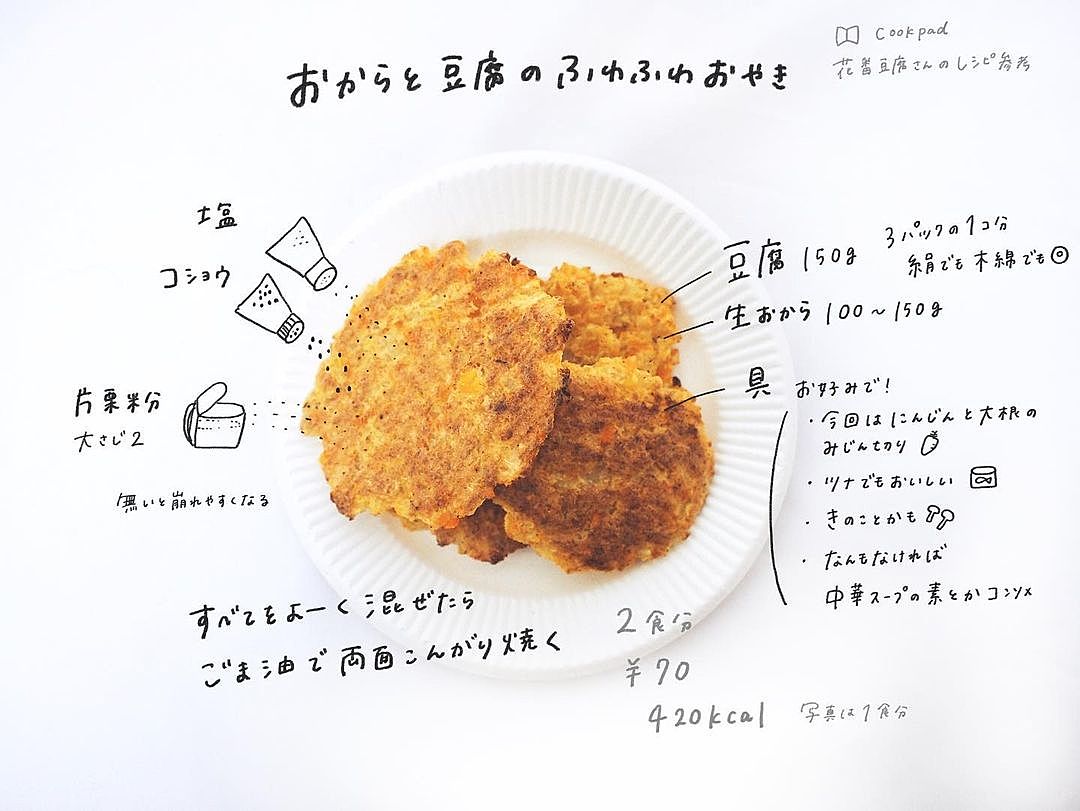 Cookpad
花畨豆腐さんのレシピ参考
おからと豆腐のふわふわおやき
塩
コショウ
片栗粉
大さじ2
無いと崩れやすくなる
豆腐 150g 3パックの1コ分
絹でも木綿でも◎
生おから 100〜150g
具 お好みで!
・今回はにんじんと大根の
みじん切り
・ツナでもおいしい
・きのことかも
・なんもなければ
中華スープの素とかコンソメ
すべてをよーく混ぜたら
ごま油で両面こんがり焼く
2食分
¥70
420kcal 写真は1食分